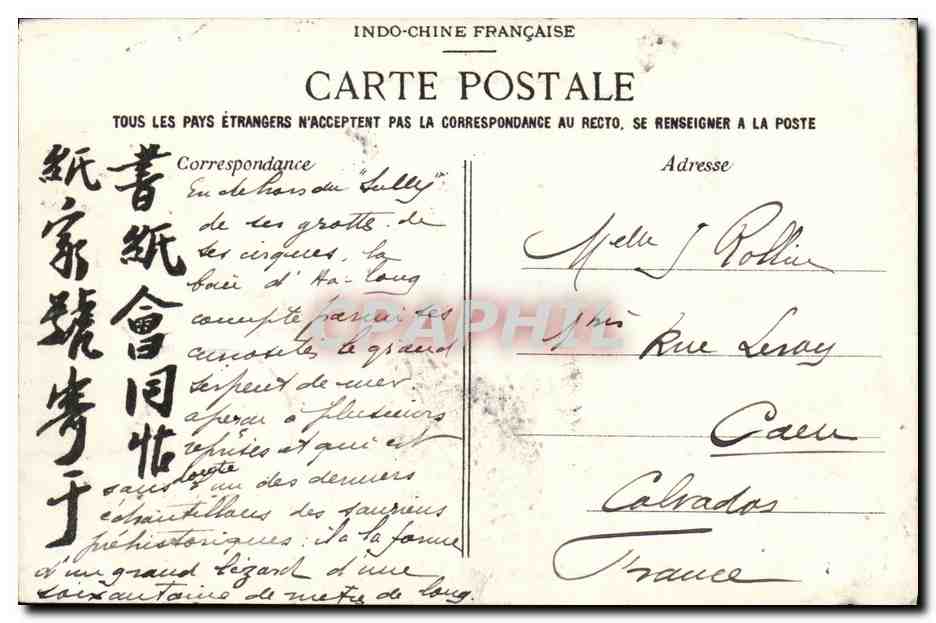 INDO-CHINE FRANÇAISE
CARTE POSTALE
TOUS LES PAYS ÉTRANGERS N'ACCEPTENT PAS LA CORRESPONDANCE AU RECTO, SE RENSEIGNER A LA POSTE
Correspondance
En dehors du "Sully"
de ses grottes de
ses cirques, la
baie d'Ha-Long
compte parmi ses
curiosités le grand
serpent de mer
aperçu à plusieurs
reprises et qui est
sans doute un des derniers
échantillons des sauriens
préhistoriques : il a la forme
d'un grand lézard d'une
soixantaine de mètres de long.
書紙會同
紙家號寄于
Adresse
Melle J Rollin
1bis Rue Leroy
Caen
Calvados
France
CPAPHIL